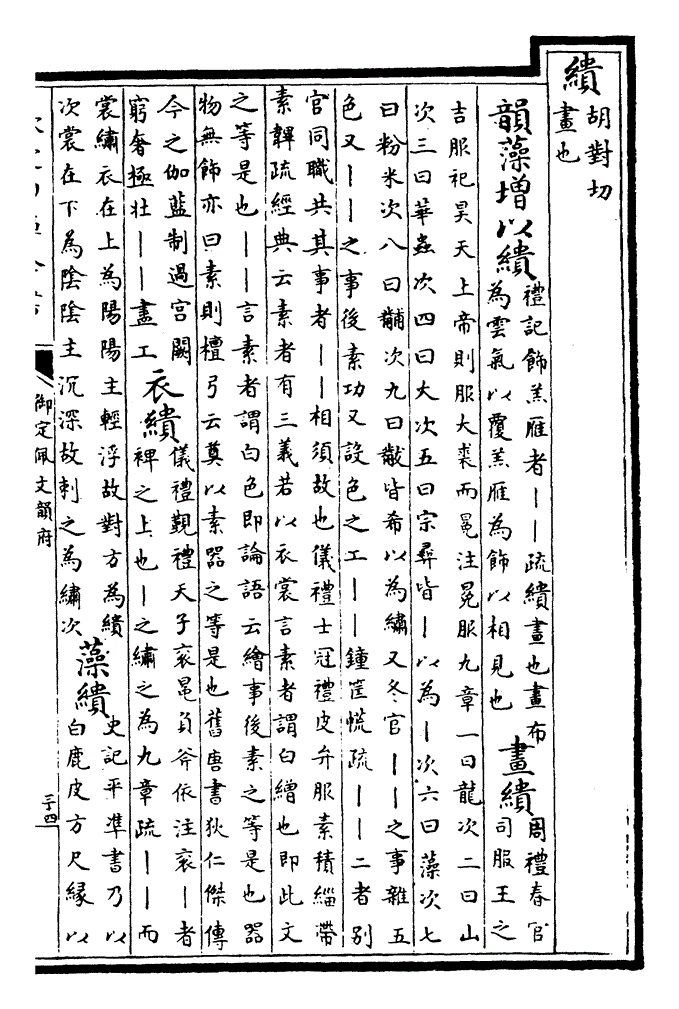 繢
胡對切
畫也
韻藻增以繢
禮記飾羔雁者——疏繢畫也畫布
為雲氣以覆羔雁為飾以相見也
畫繢
周禮春官
司服王之
吉服祀昊天上帝則服大裘而冕注冕服九章一曰龍次二曰山
次三曰華蟲次四曰火次五曰宗彝皆—以為—次六曰藻次七
曰粉米次八曰黼次九曰黻皆希以為繡又冬官——之事雜五
色又——之事後素功又設色之工——鍾筐㡛疏——二者別
官同職共其事者——相須故也儀禮士冠禮皮弁服素積緇帶
素韠疏經典云素者有三義若以衣裳言素者謂白繒也即此文
之等是也——言素者謂白色即論語云繪事後素之等是也器
物無飾亦曰素則檀弓云奠以素器之等是也舊唐書狄仁傑傳
今之伽藍制過宮闕
窮奢極壯——盡工
衣繢
儀禮覲禮天子衮冕負斧依注衮—者
裨之上也—之繡之為九章疏——而
裳繡衣在上為陽陽主輕浮故對方為繢
次裳在下為陰陰主沉深故刺之為繡次
藻繢
史記平準書乃以
白鹿皮方尺緣以
御定佩文韻府